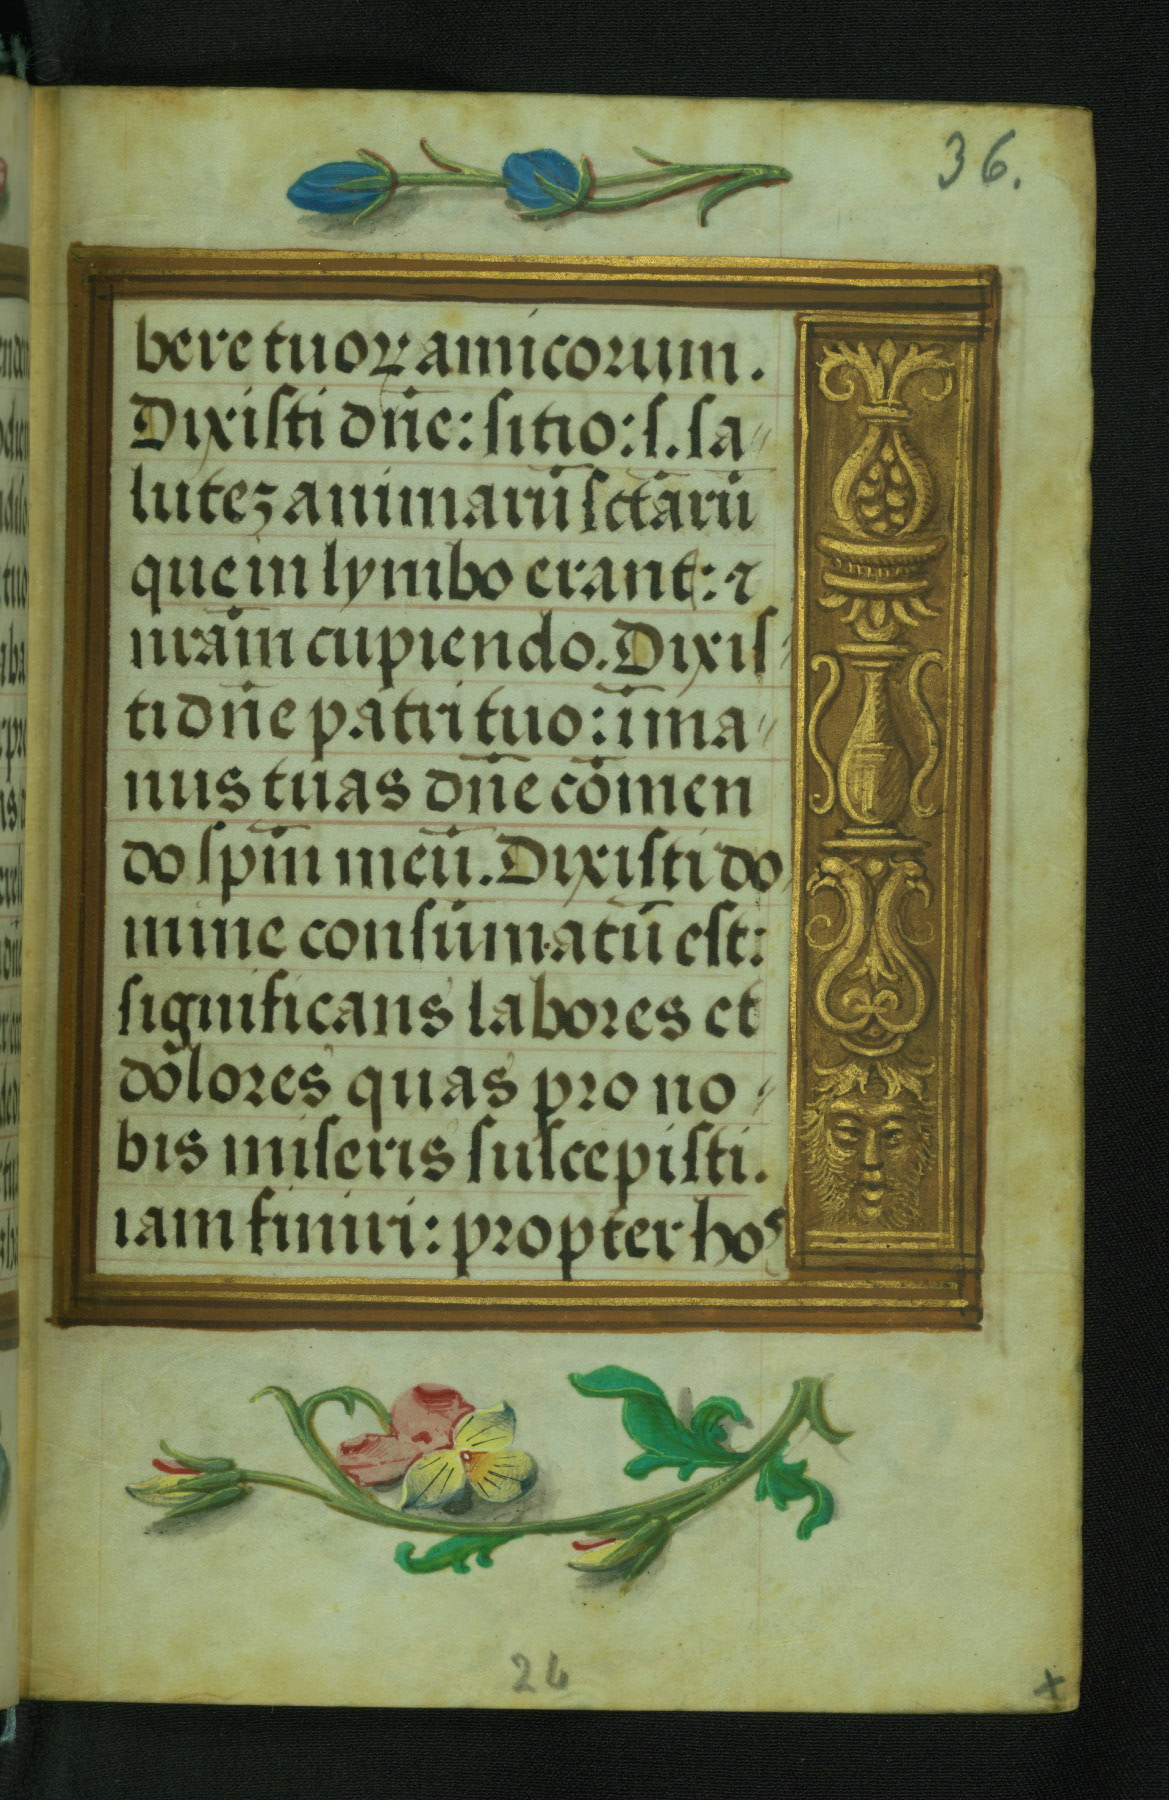 36.
bere tuoꝝ amicorum.
Dixisti dñe: sitio: s. sa〃
lutez animarū sctārū
que in lymbo erant: ⁊
nrām cupiendo. Dixis〃
ti dñe patri tuo: ī ma〃
nus tuas dñe cōmen
do spm̄ meū. Dixisti do
mine consūmatū est:
significans labores et
dolores quas pro no〃
bis miseris suscepisti.
iam finiri: propter hoˢ
24